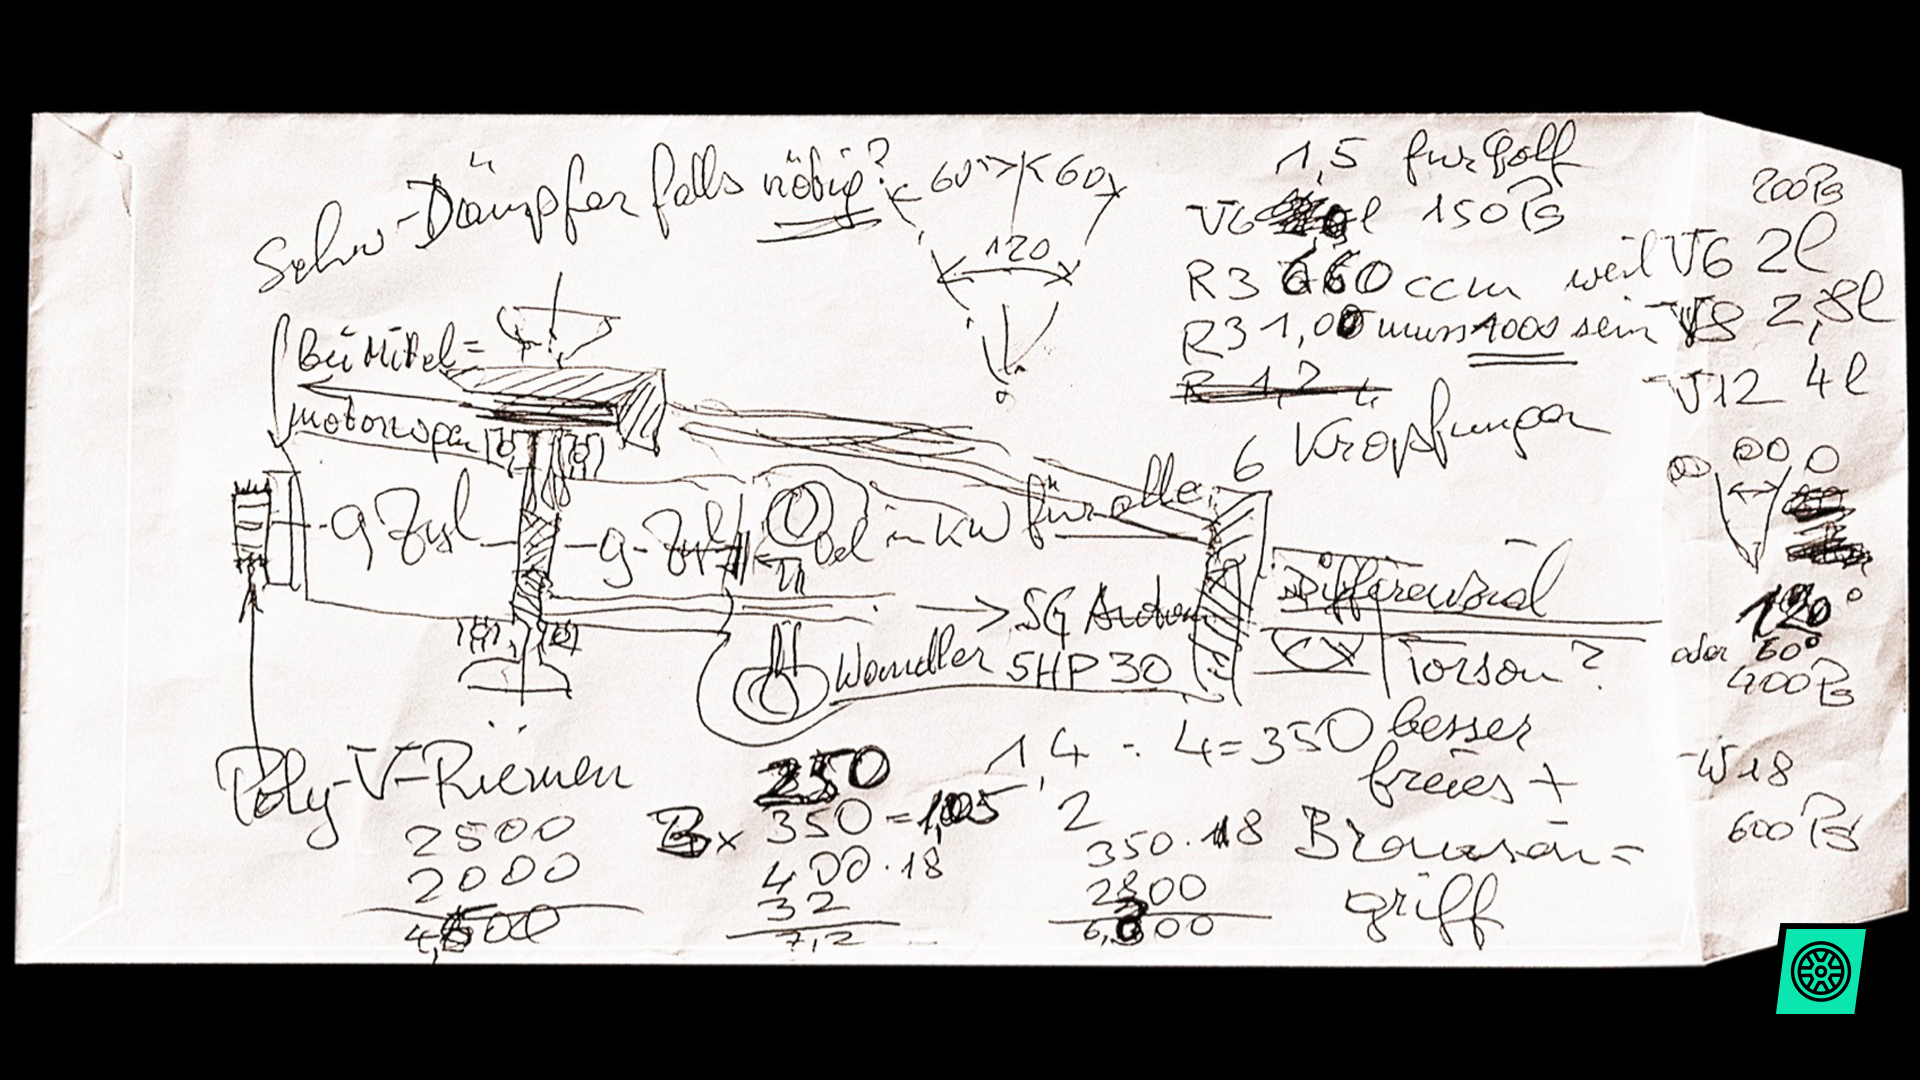 Schw-Dämpfer falls nötig?
60° 60
120
1,5 für Golf
V6 l 150 PS
R3 660 ccm weil V6 2l
R3 1,00 muss 1000 sein V8 2,8l
V12 4l
200 PS
6 Kröpfungen
Bei Mittel=
motorwagen
9 Zyl
9-Zyl
Oel in KW für alle
120°
oder 60°
400 PS
→ 5G
Wandler 5HP30
Differenzial
Torsen?
besser
freies +
Bremsein=
griff
W18
600 PS
Poly-V-Riemen
2500
2000
4,500
250
B x 350 = 1,05
400·18
32
7,2
1,4 : 4 = 350
2
350·18
2800
6,300